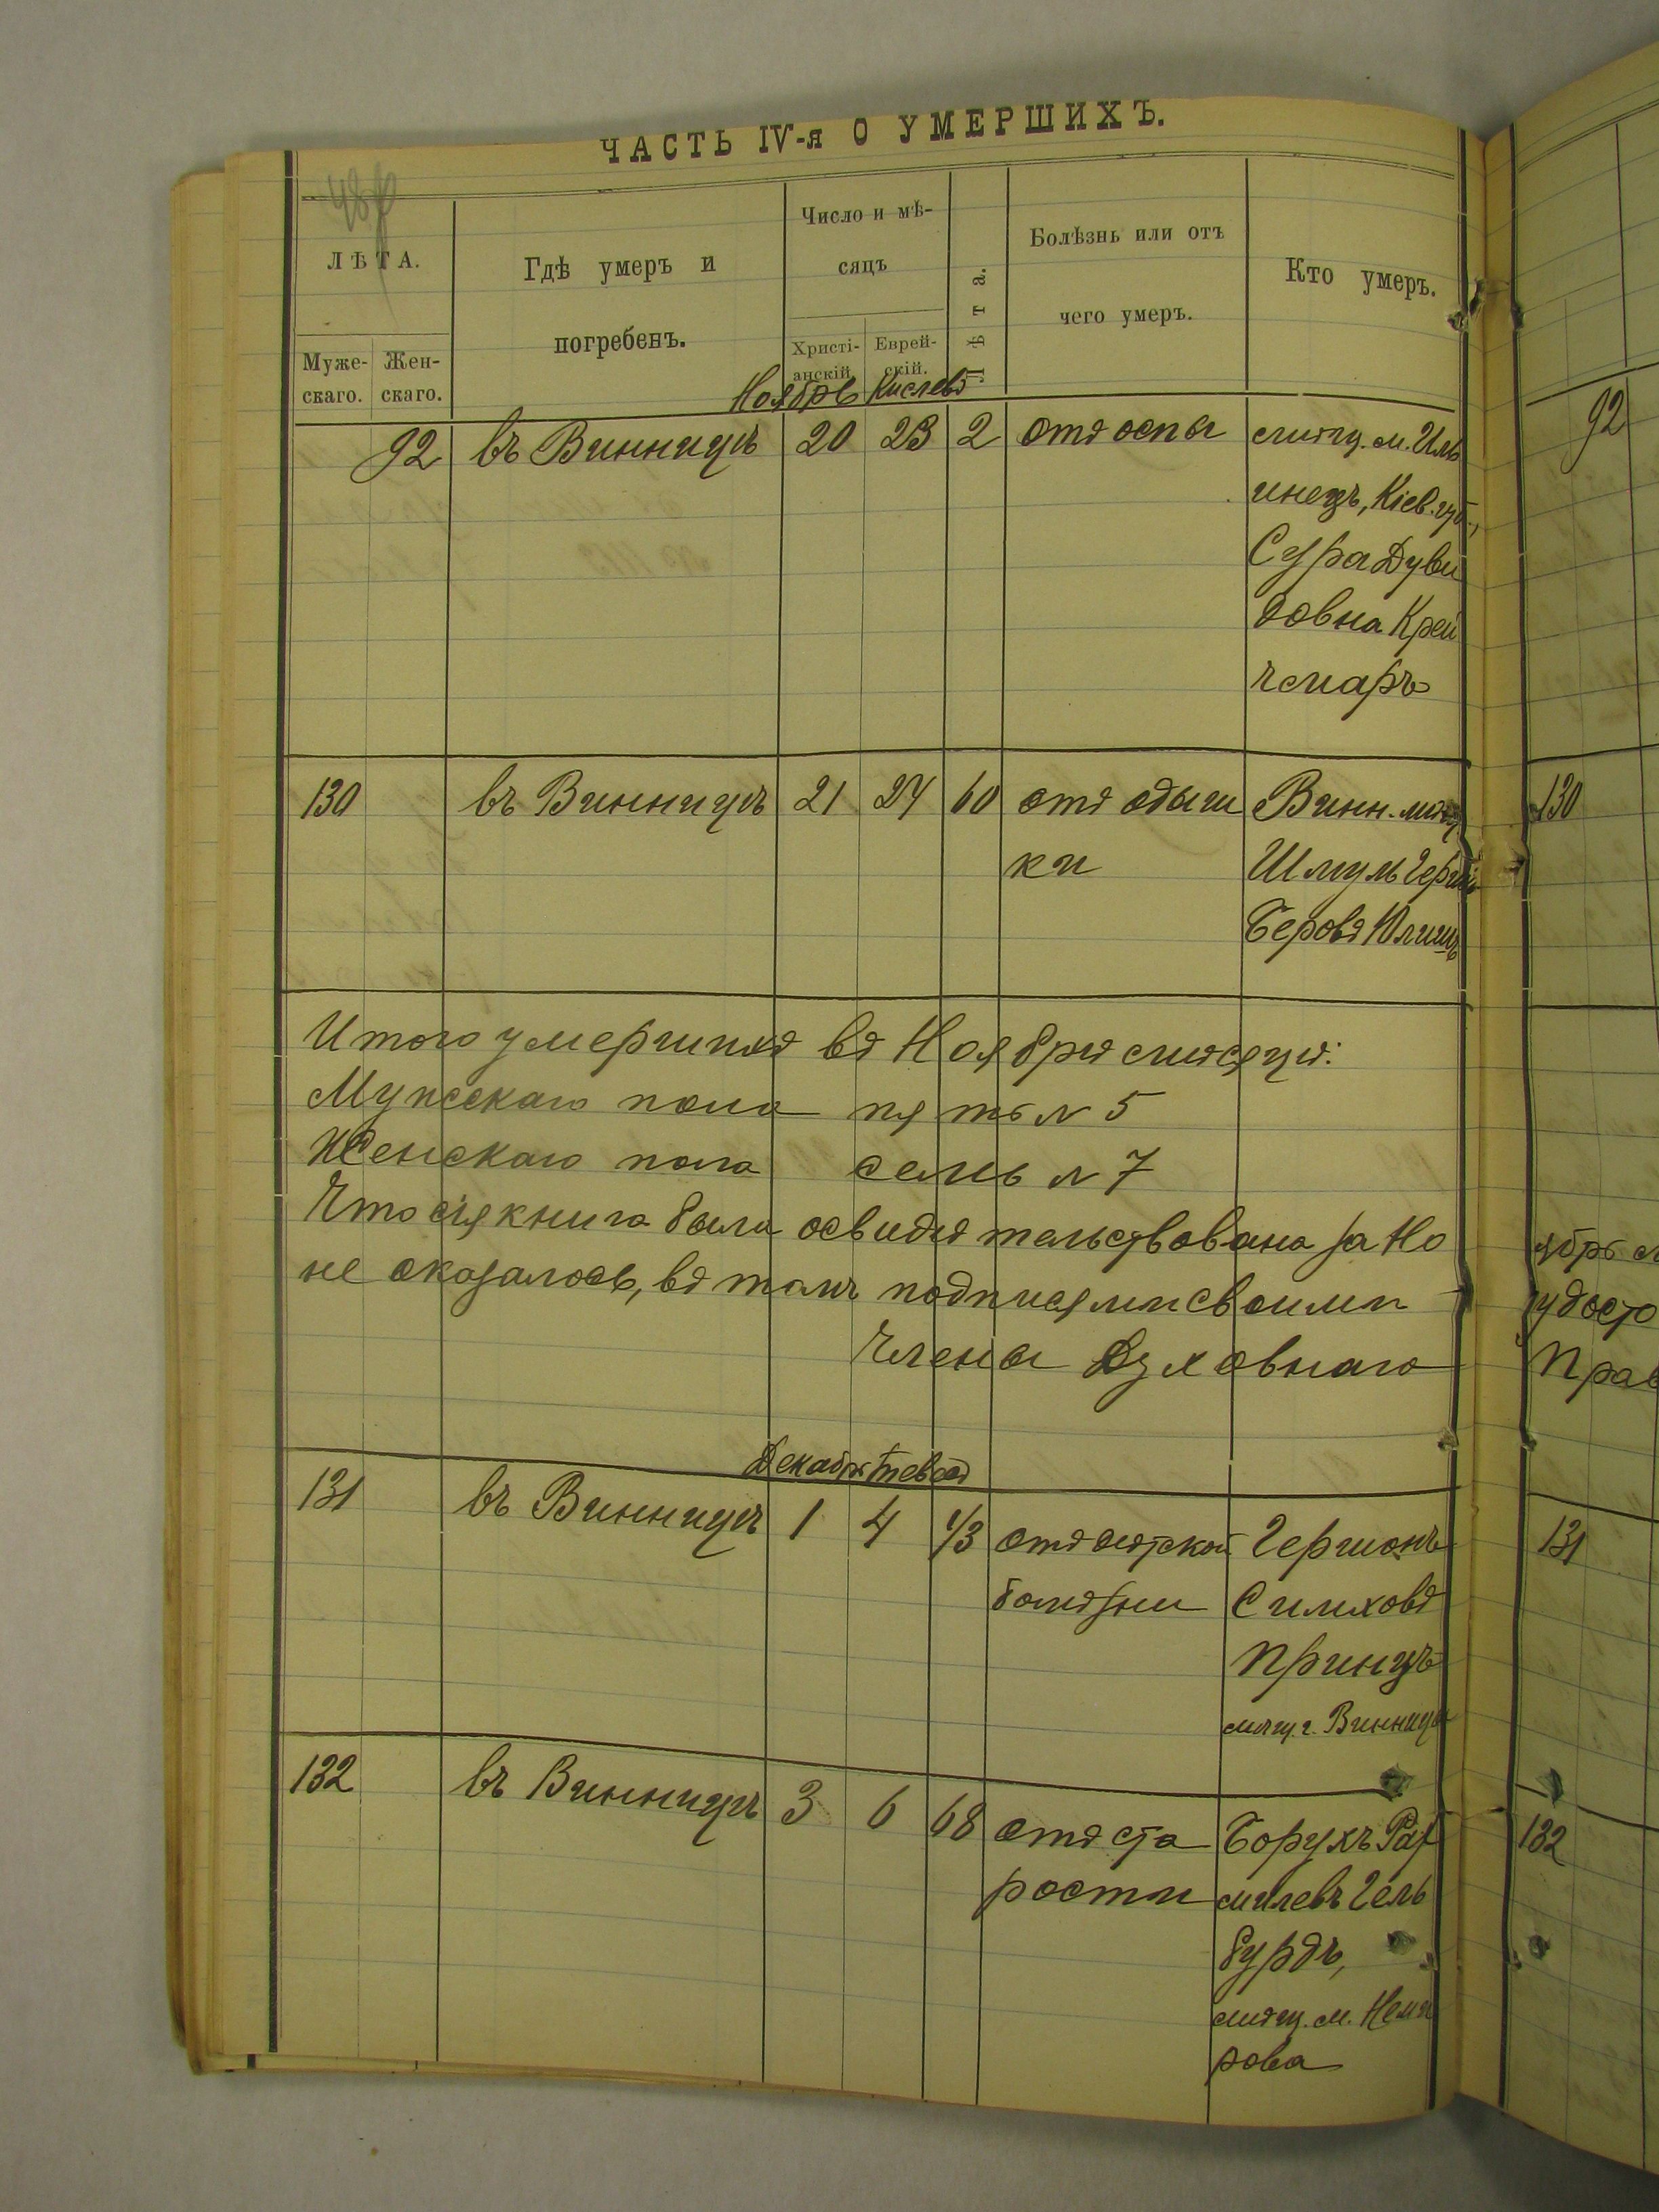 ЧАСТЬ IV-я О УМЕРШИХЪ.
ЛѢТА.
Муже-
скаго.
Жен-
скаго.
Гдѣ умеръ и
погребенъ.
Число и мѣ-
сяцъ
Христі-
анскій.
Еврей-
скій.
Лѣта.
Болѣзнь или отъ
чего умеръ.
Кто умеръ.
Ноябрь Кислевъ
92 въ Винницѣ 20 23 2 отъ оспы мѣщ. м. Иль
инецъ, Кіев. губ.,
Сура Дуви
довна Крей
чмаръ
92
130 въ Винницѣ 21 24 60 отъ одыш
ки
Винн. мѣщ.
Шмуль Герш
Беровъ
130
Итого умершихъ въ Ноябрѣ мѣсяцѣ:
Мужскаго пола пять № 5
Женскаго пола семь № 7
Что сія книга была освидѣтельствована за Но
не оказалось, въ томъ подписями своими
Члены Духовнаго
ябрь м
удосто
Прав
Декабрь Тевесъ
131 въ Винницѣ 1 4 1/3 отъ дѣтской
болѣзни
Гершонъ
Симховъ
Принцъ
мѣщ. г. Винницы
131
132 въ Винницѣ 3 6 68 отъ ста
рости
Борухъ Рах
милевъ Гель
бурдъ,
мѣщ. м. Неми
рова
132